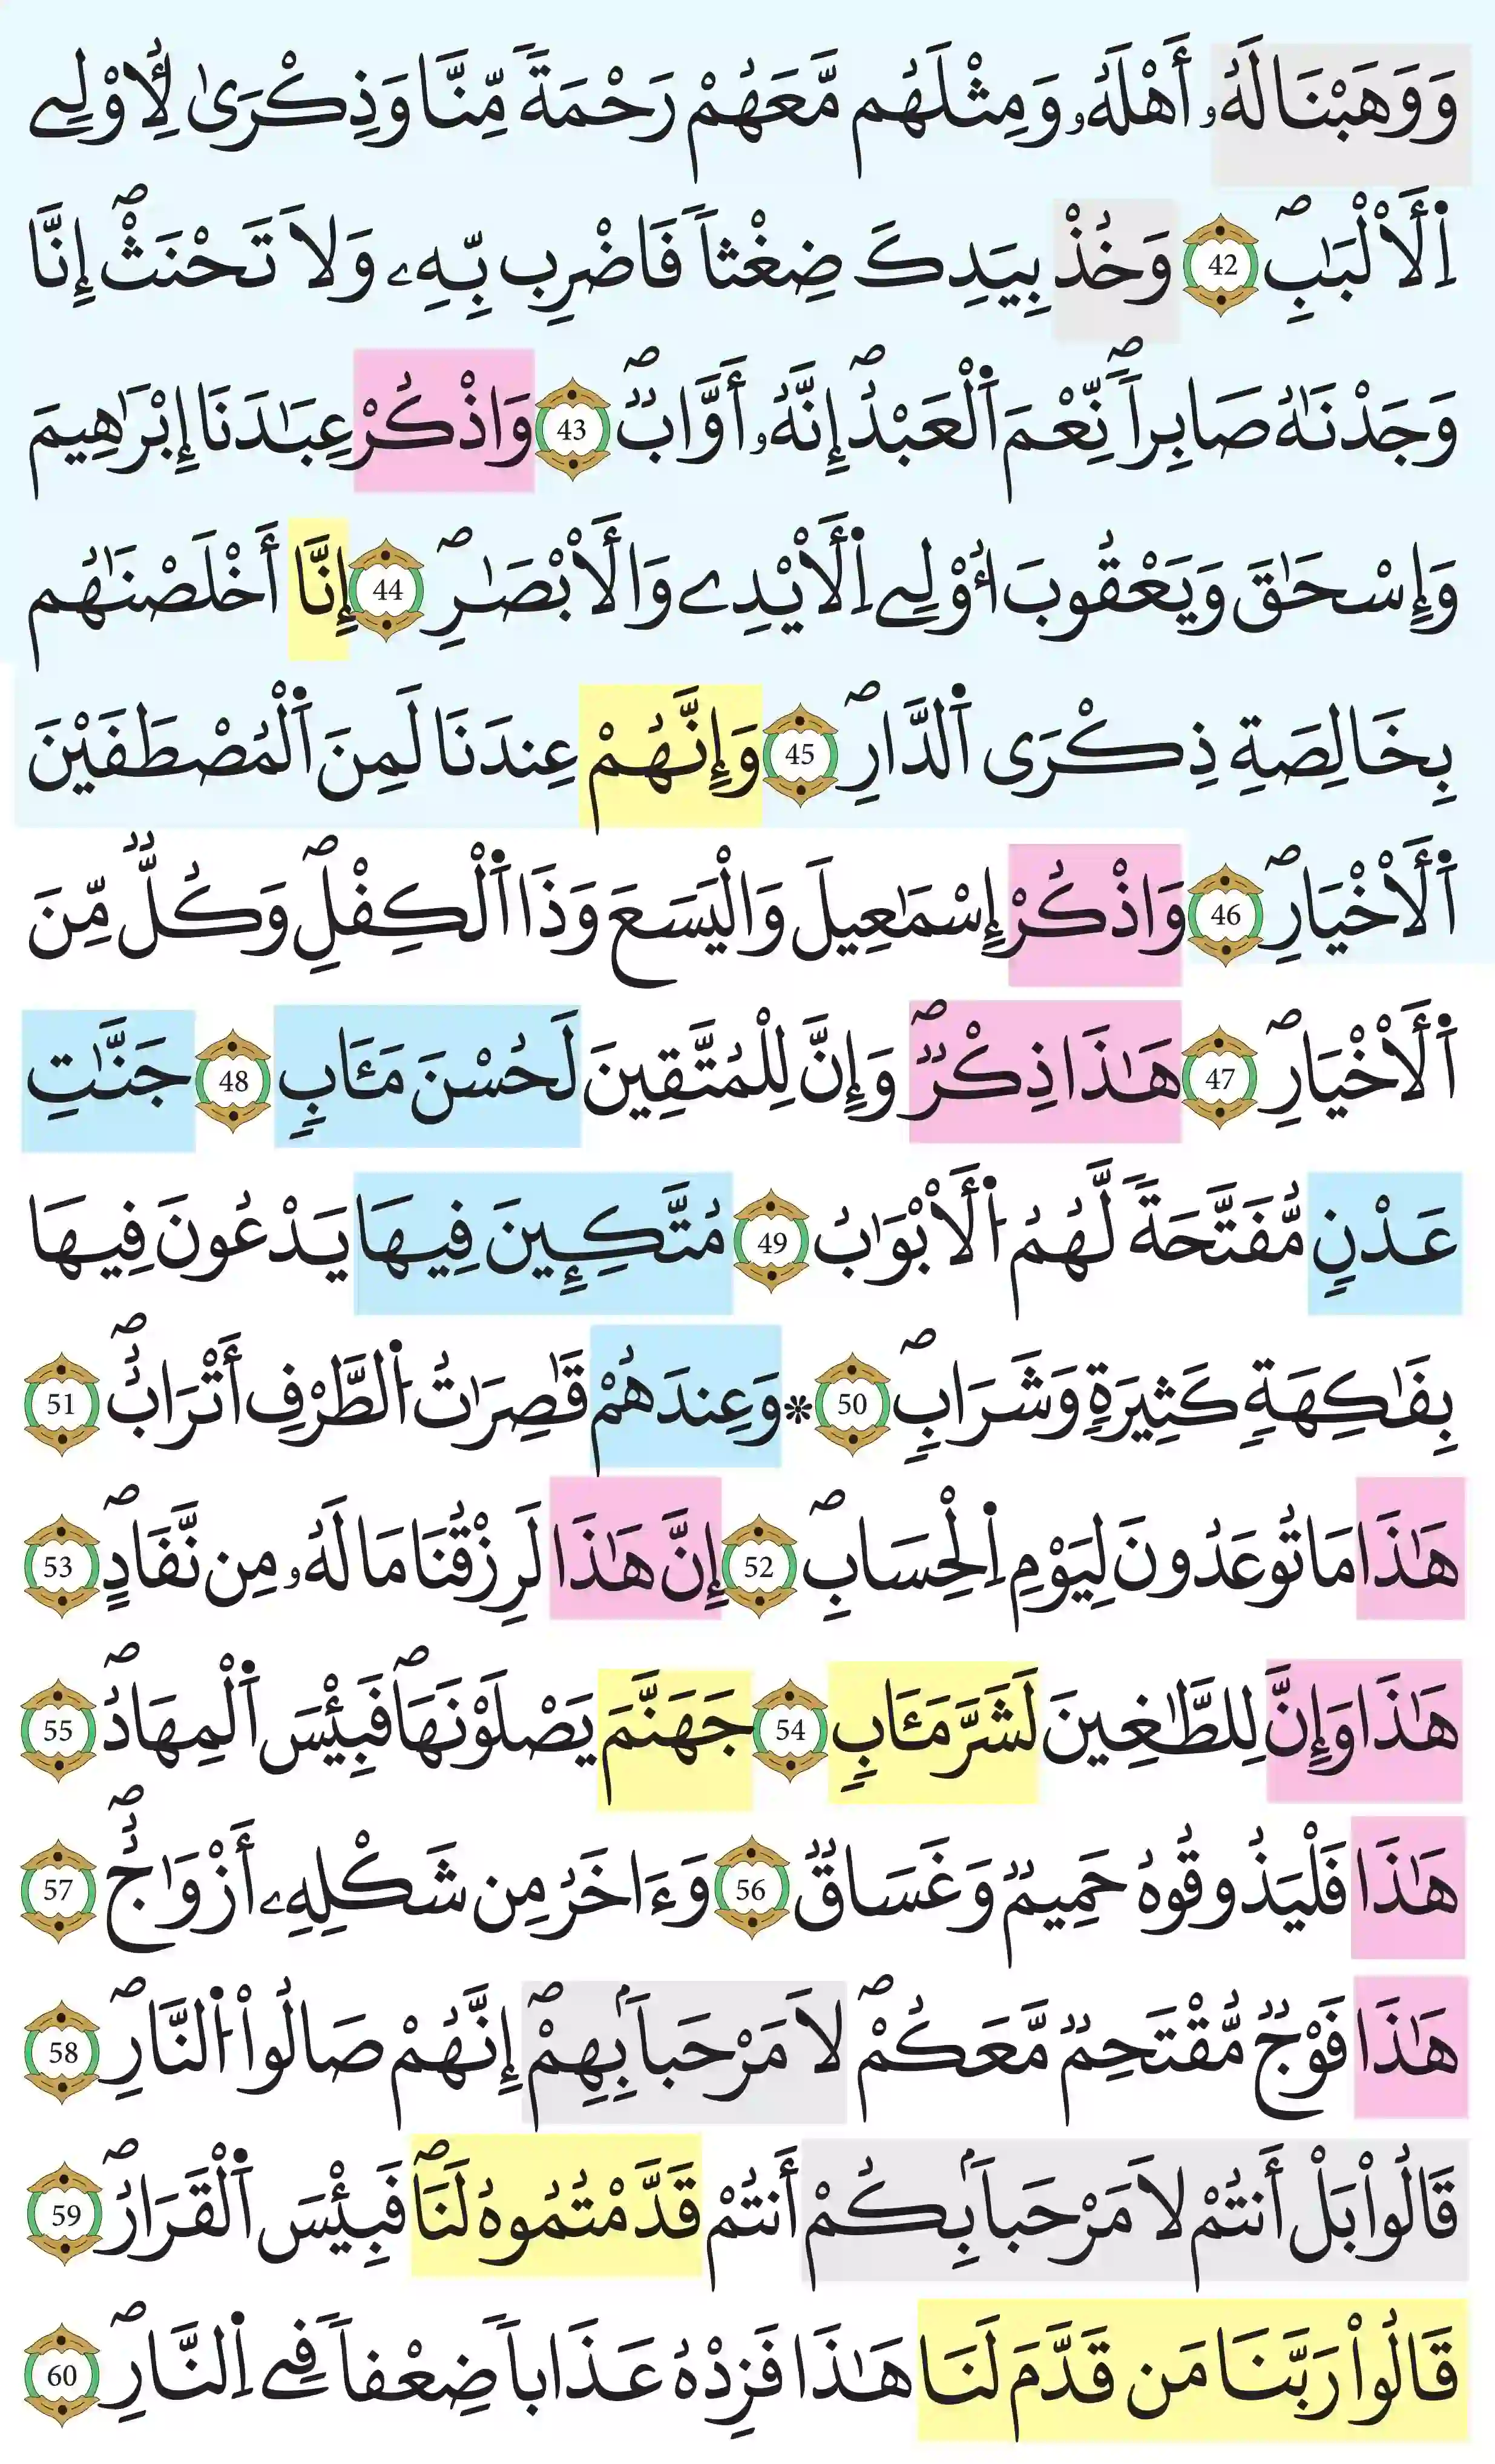 وَوَهَبْنَا لَهُۥٓ أَهْلَهُۥ وَمِثْلَهُم مَّعَهُمْ رَحْمَةٗ مِّنَّا وَذِكْرَىٰ لِأُوْلِے
اِ۬لْأَلْبَٰبِۖ 42 وَخُذْ بِيَدِكَ ضِغْثاٗ فَاضْرِب بِّهِۦ وَلَا تَحْنَثْۖ إِنَّا
وَجَدْنَٰهُ صَابِراٗۖ نِّعْمَ اَ۬لْعَبْدُۖ إِنَّهُۥٓ أَوَّابٞۖ 43 وَاذْكُرْ عِبَٰدَنَا إِبْرَٰهِيمَ
وَإِسْحَٰقَ وَيَعْقُوبَ أُوْلِے اِ۬لْأَيْدِے وَالْأَبْصَٰرِۖ 44 إِنَّا أَخْلَصْنَٰهُم
بِخَالِصَةِ ذِكْرَى اَ۬لدَّارِۖ 45 وَإِنَّهُمْ عِندَنَا لَمِنَ اَ۬لْمُصْطَفَيْنَ
اَ۬لْأَخْيَارِۖ 46 وَاذْكُرْ إِسْمَٰعِيلَ وَالْيَسَعَ وَذَا اَ۬لْكِفْلِۖ وَكُلّٞ مِّنَ
اَ۬لْأَخْيَارِۖ 47 هَٰذَا ذِكْرٞۖ وَإِنَّ لِلْمُتَّقِينَ لَحُسْنَ مَـَٔابٖ 48 جَنَّٰتِ
عَدْنٖ مُّفَتَّحَةٗ لَّهُمُ اُ۬لْأَبْوَٰبُ 49 مُتَّكِـِٕينَ فِيهَا يَدْعُونَ فِيهَا
بِفَٰكِهَةٖ كَثِيرَةٖ وَشَرَابٖۖ 50 ۞ وَعِندَهُمْ قَٰصِرَٰتُ اُ۬لطَّرْفِ أَتْرَابٌۖ 51
هَٰذَا مَا تُوعَدُونَ لِيَوْمِ اِ۬لْحِسَابِۖ 52 إِنَّ هَٰذَا لَرِزْقُنَا مَا لَهُۥ مِن نَّفَادٍۖ 53
هَٰذَا وَإِنَّ لِلطَّٰغِينَ لَشَرَّ مَـَٔابٖ 54 جَهَنَّمَ يَصْلَوْنَهَاۖ فَبِئْسَ اَ۬لْمِهَادُۖ 55
هَٰذَا فَلْيَذُوقُوهُ حَمِيمٞ وَغَسَاقٞ 56 وَءَاخَرُ مِن شَكْلِهِۦٓ أَزْوَٰجٌۖ 57
هَٰذَا فَوْجٞ مُّقْتَحِمٞ مَّعَكُمْۖ لَا مَرْحَباَۢ بِهِمْۖ إِنَّهُمْ صَالُواْ اُ۬لنَّارِۖ 58
قَالُواْ بَلْ أَنتُمْ لَا مَرْحَباَۢ بِكُمْ أَنتُمْ قَدَّمْتُمُوهُ لَنَاۖ فَبِئْسَ اَ۬لْقَرَارُۖ 59
قَالُواْ رَبَّنَا مَن قَدَّمَ لَنَا هَٰذَا فَزِدْهُ عَذَاباٗ ضِعْفاٗ فِے اِ۬لنَّارِۖ 60